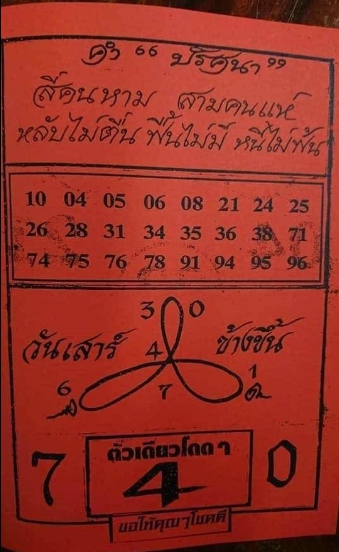 คำ “ ปริศนา ”
สี่คนหาม สามคนแห่
หลับไม่ตื่น ฟื้นไม่มี หนีไม่พ้น
10 04 05 06 08 21 24 25
26 28 31 34 35 36 38 71
74 75 76 78 91 94 95 96
3 0
วันเสาร์ 4 ข้างขึ้น
6 7 1
ตัวเดียวโดด ๆ
7 4 0
ขอให้คุณๆโชคดี